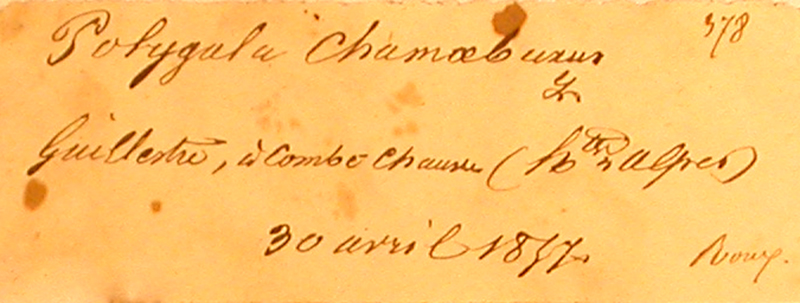 378
Polygala Chamæbuxus
L.
Guillestre, à Combe Chauve (h.tes alpes)
30 avril 1857.
Roux.